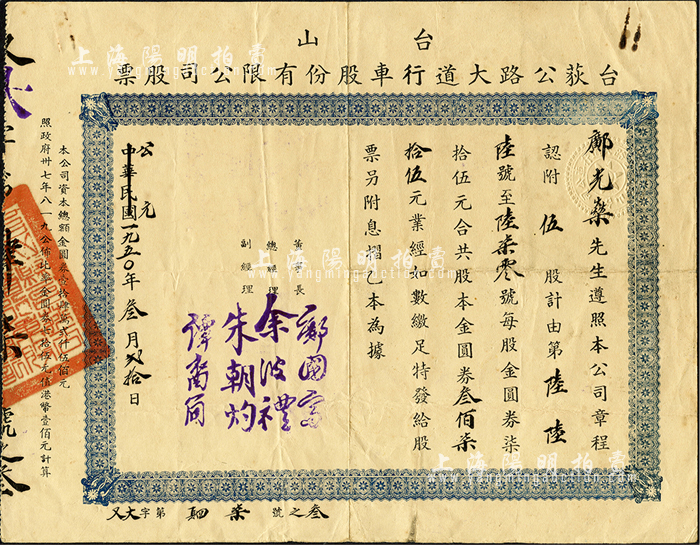 台山
台荻公路大道行車股份有限公司股票
鄺光燊先生遵照本公司章程
認附伍股計由第陸陸
陸號至陸柒零號每股金圓券柒
拾伍元合共股本金圓券叁佰柒
拾伍元業經如數繳足特發給股
票另附息摺乙本為據
董事長 鄺國
總經理 余波禮
副經理 朱朝灼
譚
公元
中華民國一九五〇年叁月弍拾日
本公司資本總額金圓券
照政府卅七年八一九公佈
金圓券柒拾伍元值港幣壹佰元計算
又大字第 柒號之叁
上海陽明拍賣
www.yangmingauction.com
上海陽明拍賣
www.yangmingauction.com
上海陽明拍賣
www.yangmingauction.com